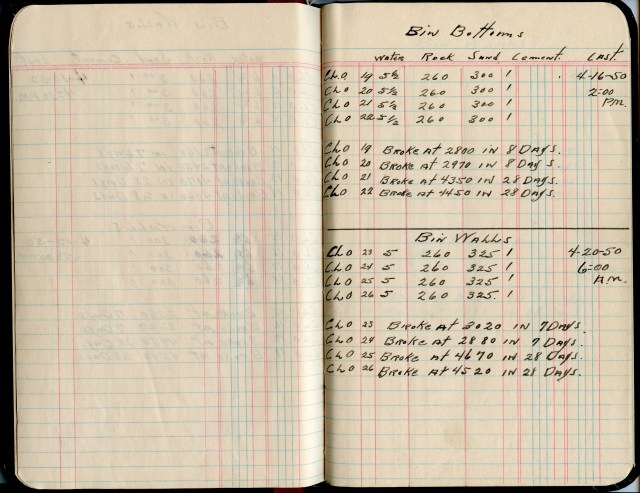 Bin Bottoms
Water Rock Sand Cement. Cast.
CLO 19 5½ 260 300 1 4-16-50
CLO 20 5½ 260 300 1 2:00
CLO 21 5½ 260 300 1 P.M.
CLO 22 5½ 260 300 1
CLO 19 Broke At 2800 in 8 Days.
CLO 20 Broke At 2970 in 8 Days.
CLO 21 Broke At 4350 in 28 Days.
CLO 22 Broke At 4450 in 28 Days.
Bin Walls
CLO 23 5 260 325 1 4-20-50
CLO 24 5 260 325 1 6:00
CLO 25 5 260 325 1 A.M.
CLO 26 5 260 325. 1
CLO 23 Broke At 3020 in 7 Days.
CLO 24 Broke At 2880 in 7 Days.
CLO 25 Broke At 4670 in 28 Days.
CLO 26 Broke At 4520 in 28 Days.